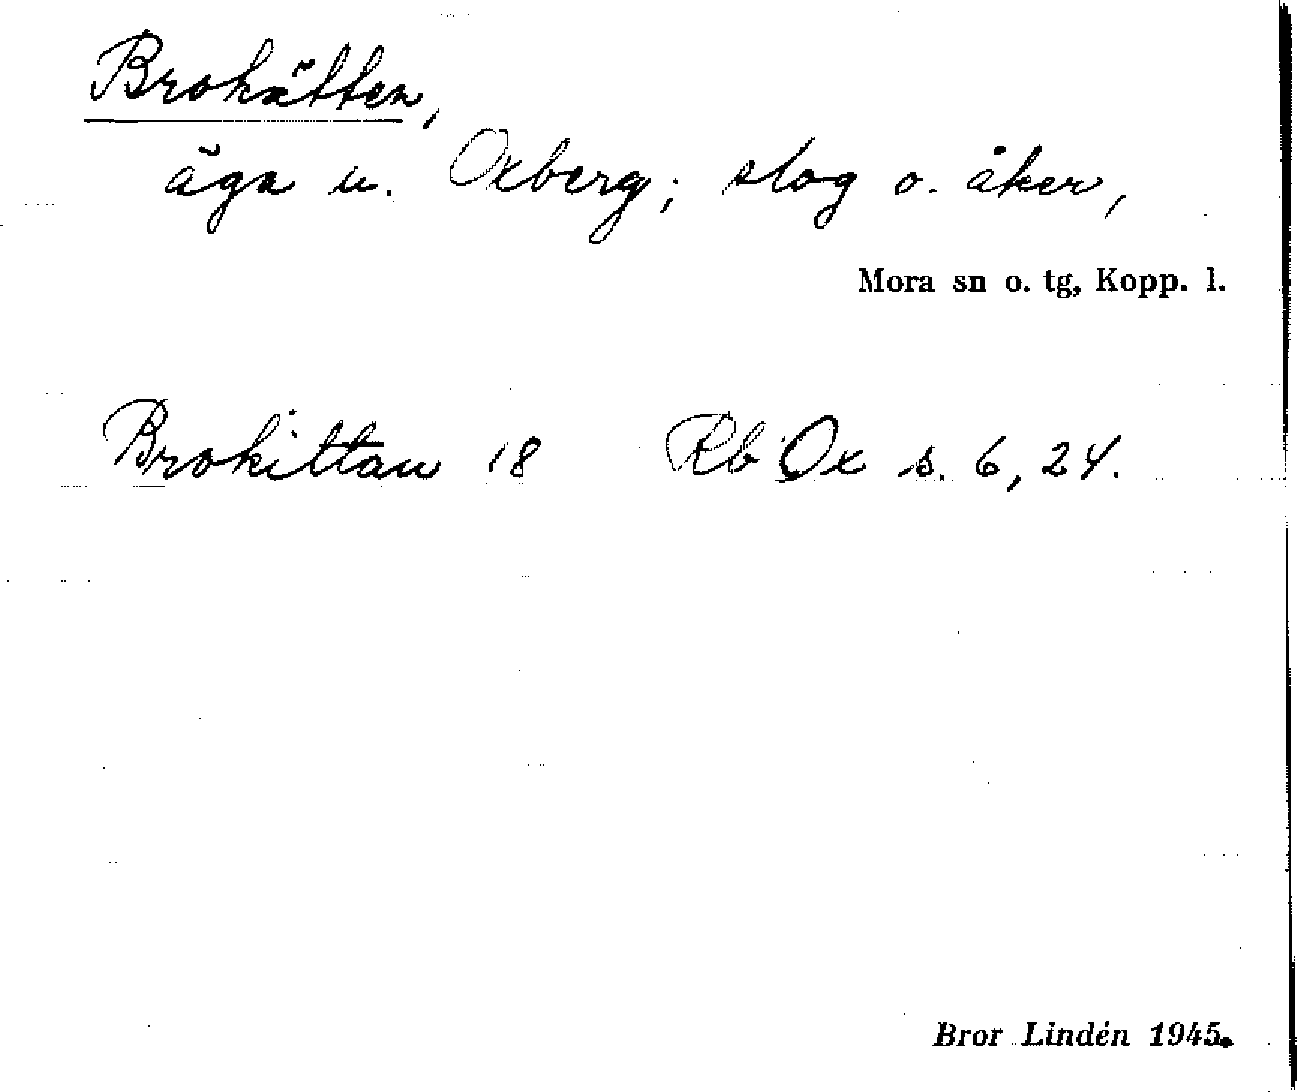 Brokätten,
äga u. Oxberg; slog o. åker,
Mora sn o. tg, Kopp. l.
Brokittan 18 Rb Ox s. 6, 24.
Bror Lindén 1945.